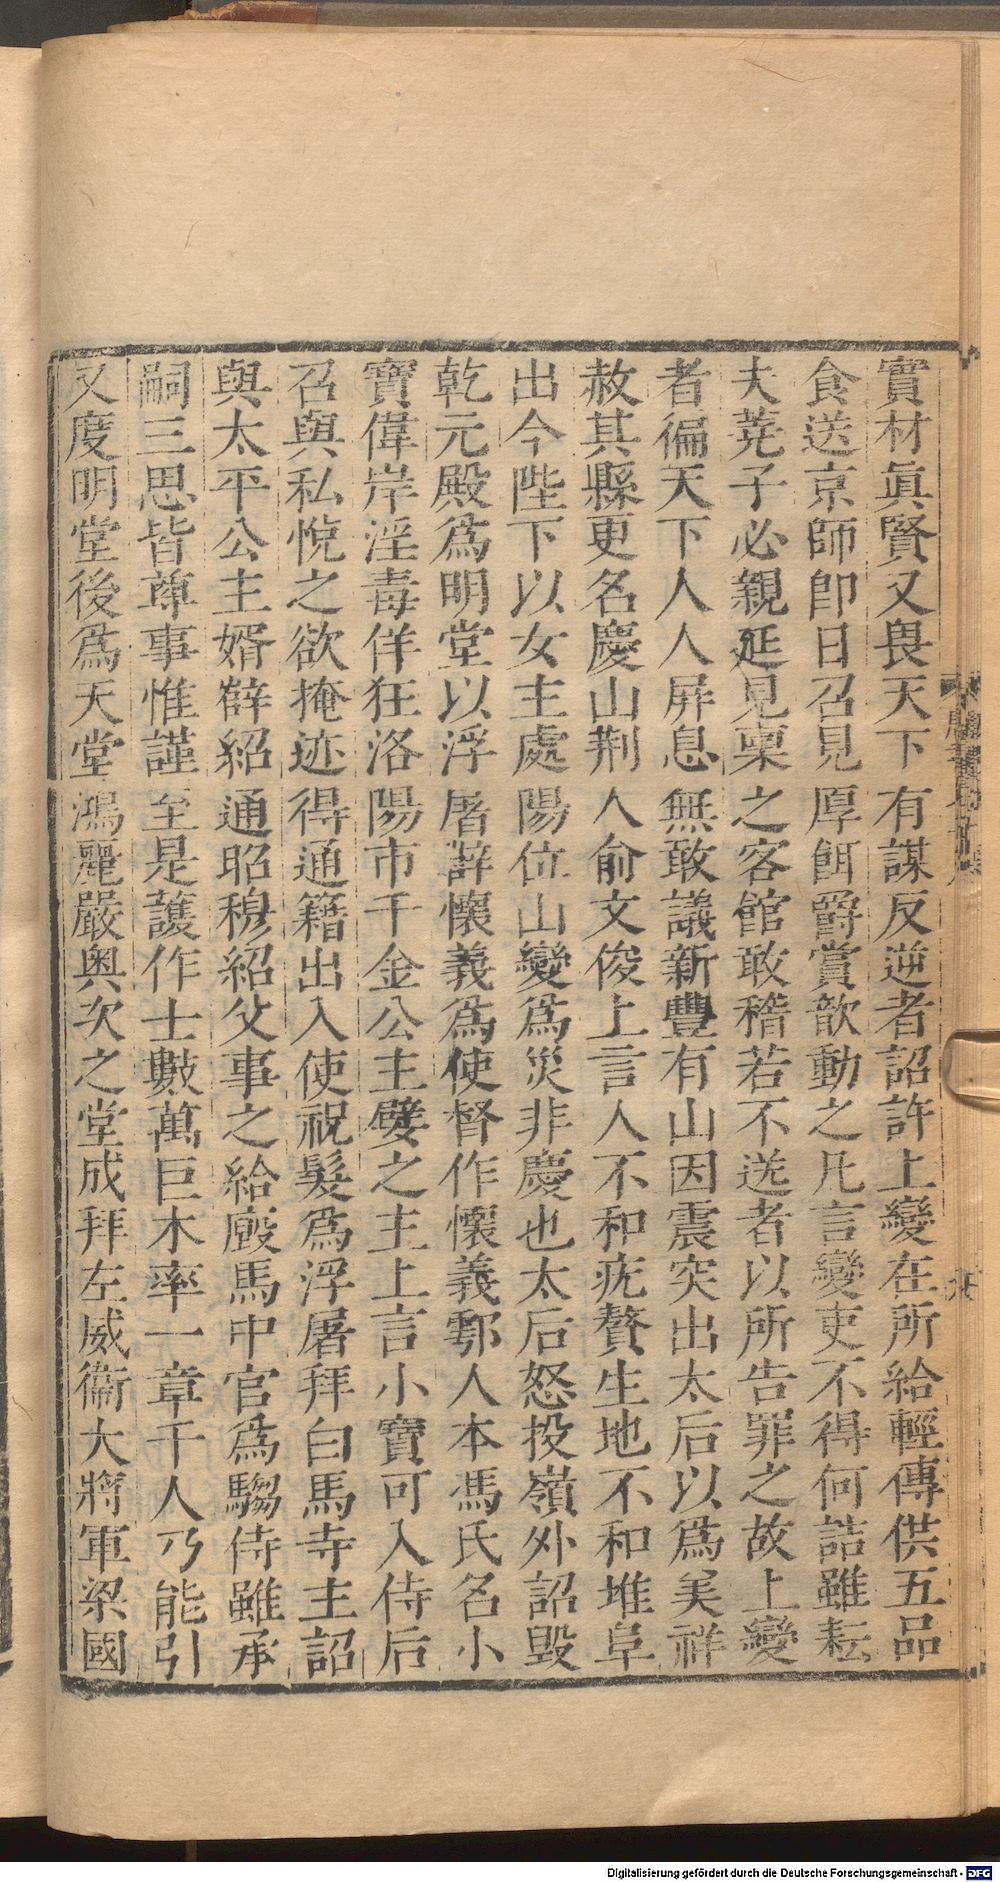 實材眞賢又畏天下有謀反逆者詔許上變在所給輕傳供五品
食送京師卽日召見厚餌爵賞歆動之凡言變吏不得何詰雖耘
夫蕘子必親延見稟之客館敢稽若不送者以所告罪之故上變
者徧天下人人屏息無敢議新豐有山因震突出太后以爲美祥
赦其縣更名慶山荆人俞文俊上言人不和疣贅生地不和堆阜
出今陛下以女主處陽位山變爲災非慶也太后怒投嶺外詔毀
乾元殿爲明堂以浮屠薛懷義爲使督作懷義鄠人本馮氏名小
寶偉岸淫毒佯狂洛陽市千金公主嬖之主上言小寶可入侍后
召與私悅之欲掩迹得通籍出入使祝髮爲浮屠拜白馬寺主詔
與太平公主婿薛紹通昭穆紹父事之給廏馬中官爲騶侍雖承
嗣三思皆尊事惟謹至是護作士數萬巨木率一章千人乃能引
又度明堂後爲天堂鴻麗嚴奧次之堂成拜左威衞大將軍梁國
Digitalisierung gefördert durch die Deutsche Forschungsgemeinschaft - DFG